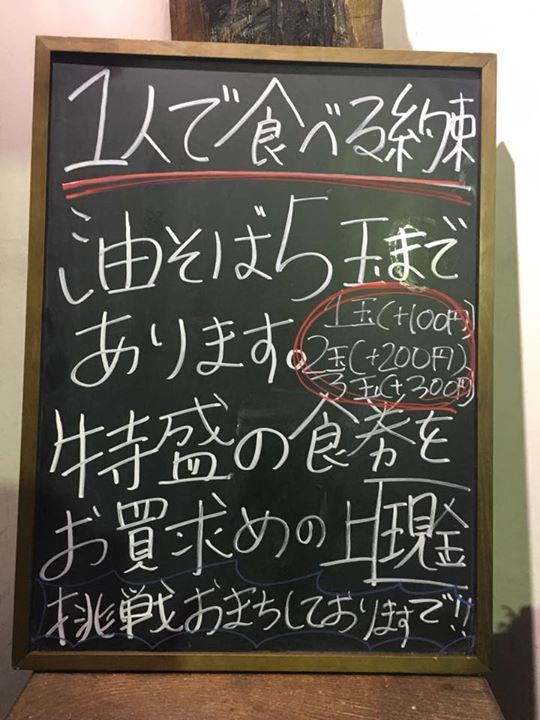 1人で食べる約束
油そば5玉まで
あります。
1玉(+100円)
2玉(+200円)
3玉(+300円)
特盛の食券を
お買求めの上現金
挑戦おまちしておりますで!!